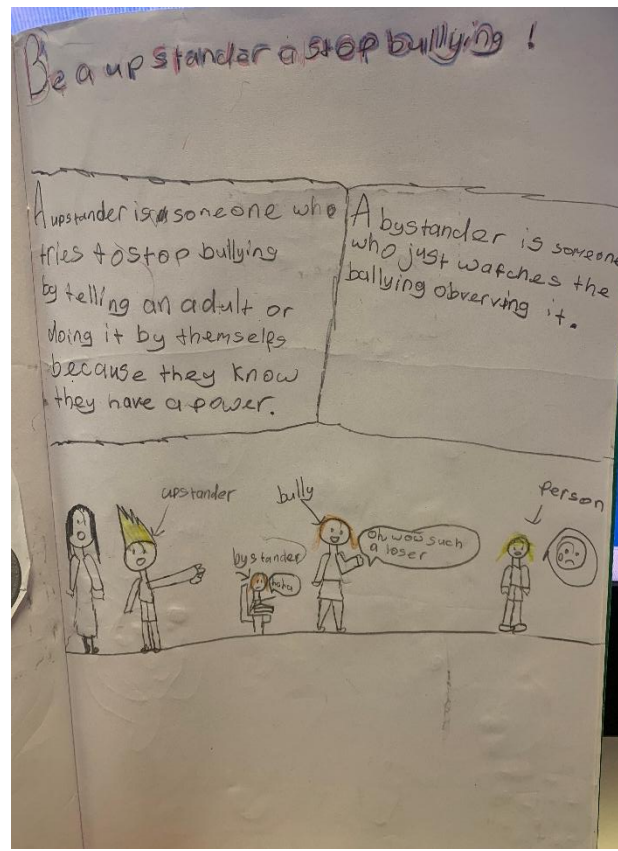 Be a upstander a stop bullying !
A upstander is a someone who
tries to stop bullying
by telling an adult or
doing it by themselfs
because they know
they have a power.
A bystander is someone
who just watches the
ballying obverving it.
upstander
bystander
haha
bully
oh wow such
a loser
Person